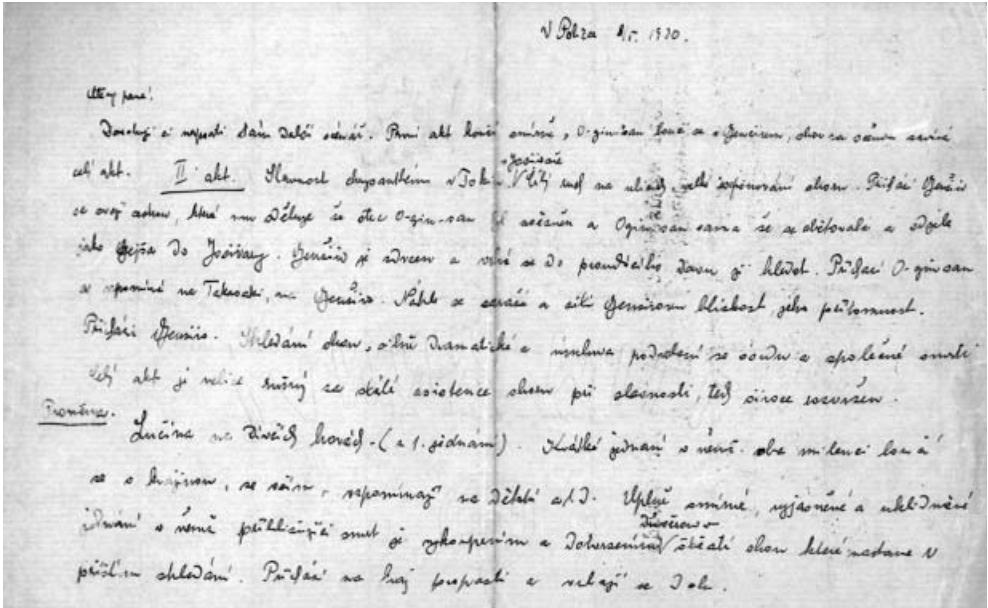 V Polza 1930.
Milý pane!
Dovoluji si napsati Vám další scénář. První akt končí smírně, O-gin-san loučí se s Genčirem, sbor za scénou zavírá
celý akt. II akt. Slavnost chrysanthém v Tokiu
v Jošivaře
. V bílý sníh na ulicích velké exponování sboru. Přichází Genčiro
se svojí, která mu sděluje že otec O-gin-san byl a Ogin-san sama se obětovala a odjela
jako gejša do Jošivary. Genčiro je zdrcen a vrhá se do proudícího davu ji hledat. Přichází O-gin-san
a vzpomíná na Takasaki, na Genčira. Náhle se a cítí Genčirovu blízkost, jeho přítomnost.
Přichází Genčiro. Shledání obou, silně dramatické a podrobení se osudu a společné smrti
Celý akt je velice rušný za stálé asistence sboru při slavnosti, tedy široce rozvržen.
Proměna. Lučina na Dívčích horách - (z 1. jednání). Krátké jednání v němž oba milenci loučí
se s krajinou, se vším, vzpomínají na dětství a.t.d. Úplně smírné, vyjasněné a uklidněné
jednání v němž přibližující smrt je vykoupením a štěstí obou které nastane v
příštím shledání. Přichází na kraj propasti a vrhají se dolů.